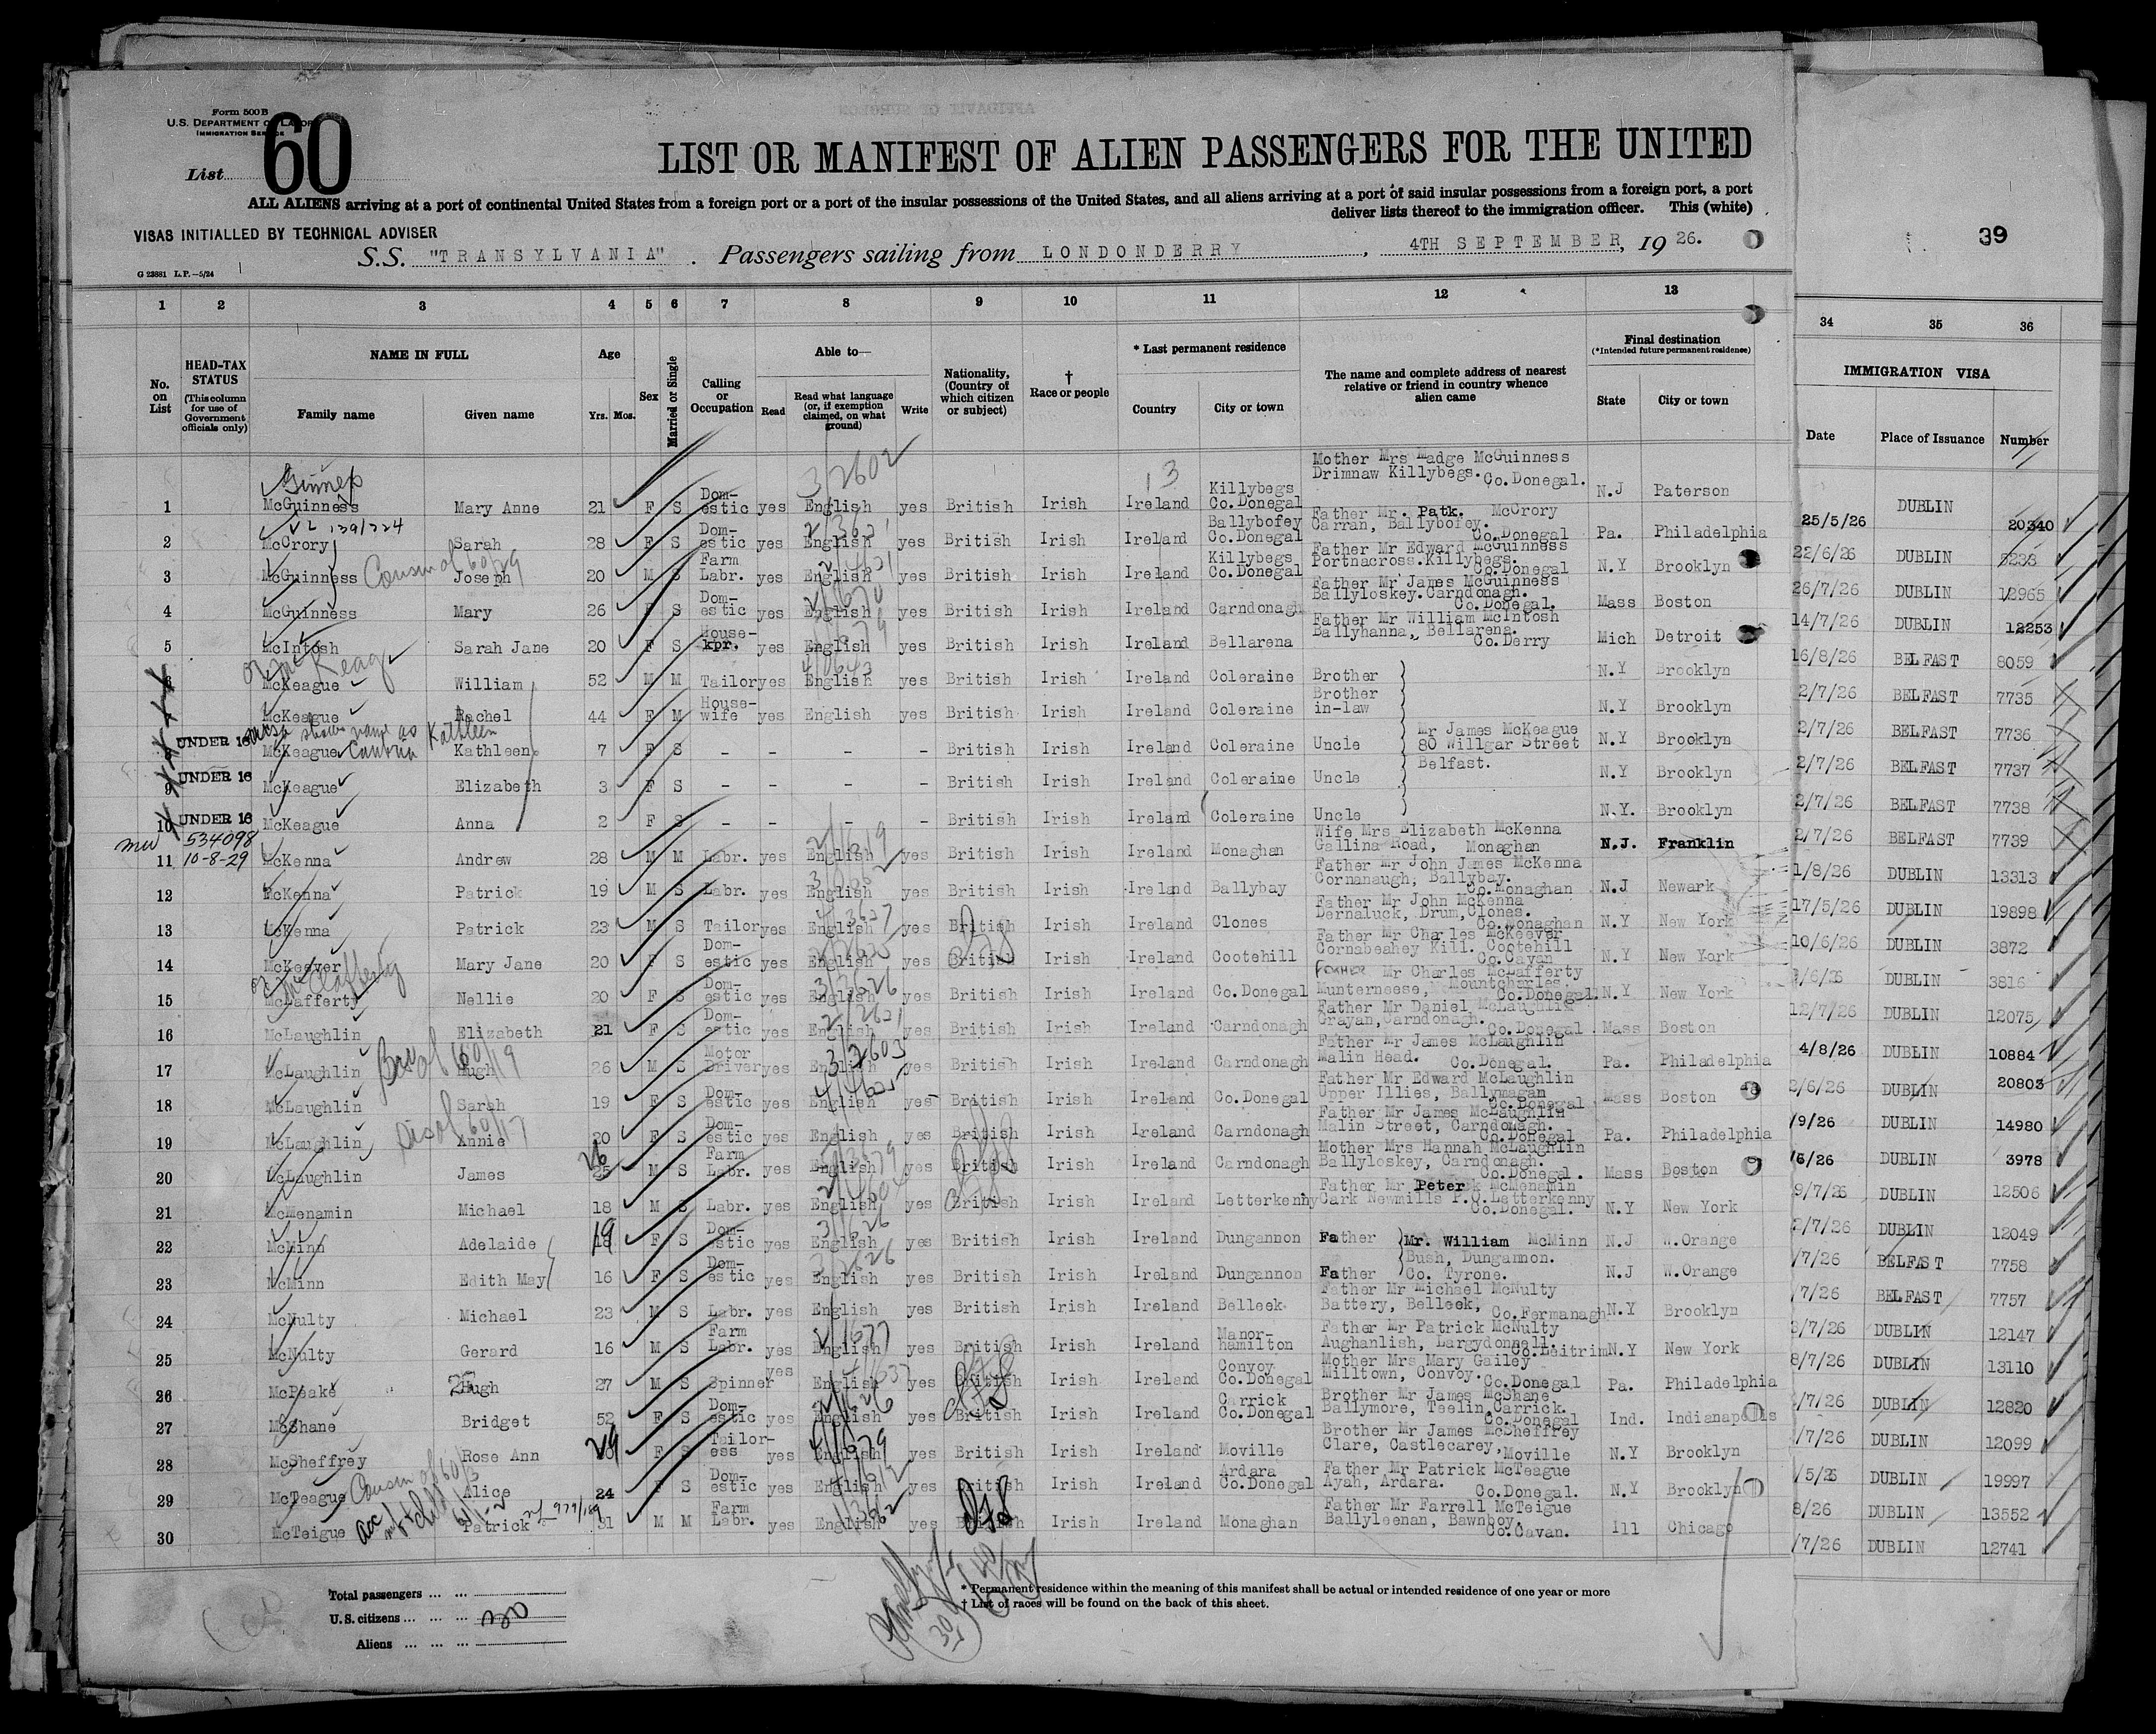 Form 500 B
U.S. DEPARTMENT OF LABOR
IMMIGRATION SERVICE
List 60
LIST OR MANIFEST OF ALIEN PASSENGERS FOR THE UNITED
ALL ALIENS arriving at a port of continental United States from a foreign port or a port of the insular possessions of the United States, and all aliens arriving at a port of said insular possessions from a foreign port, a port
deliver lists thereof to the immigration officer. This (white)
VISAS INITIALLED BY TECHNICAL ADVISER
S.S. "TRANSYLVANIA". Passengers sailing from LONDONDERRY, 4TH SEPTEMBER, 1926.
39
G 23881 L.P.—5/24
1 2 3 4 5 6 7 8 9 10 11 12 13 34 35 36
No. on List
HEAD-TAX STATUS (This column for use of Government officials only)
NAME IN FULL Family name Given name
Age Yrs. Mos.
Sex
Married or Single
Calling or Occupation
Able to— Read Read what language (or, if exemption claimed, on what ground) Write
Nationality, (Country of which citizen or subject)
† Race or people
* Last permanent residence Country City or town
The name and complete address of nearest relative or friend in country whence alien came
Final destination (*Intended future permanent residence) State City or town
IMMIGRATION VISA Date Place of Issuance Number
1 McGuinness Mary Anne 21 F S Dom-estic yes English yes British Irish Ireland Killybegs Co.Donegal Mother Mrs Madge McGuinness Drimnaw Killybegs. Co.Donegal. N.J Paterson
Ginness
3/2602
13
DUBLIN 20340
2 McCrory Sarah 28 F S Dom-estic yes English yes British Irish Ireland Ballybofey Co.Donegal Father Mr. Patk. McCrory Carran, Ballybofey. Co.Donegal Pa. Philadelphia
25/5/26
3 McGuinness Joseph 20 M S Farm Labr. yes English yes British Irish Ireland Killybegs Co.Donegal Father Mr Edward McGuinness Portnacross.Killybegs. Co.Donegal N.Y Brooklyn
Cousin of 60/29
22/6/26 DUBLIN 5238
4 McGuinness Mary 26 F S Dom-estic yes English yes British Irish Ireland Carndonagh Father Mr James McGuinness Ballyloskey.Carndonagh. Co.Donegal. Mass Boston
26/7/26 DUBLIN 12965
5 McIntosh Sarah Jane 20 F S House-kpr. yes English yes British Irish Ireland Bellarena Father Mr William McIntosh Ballyhanna, Bellarena. Co.Derry Mich Detroit
14/7/26 DUBLIN 12253
or McKeag
16/8/26 BELFAST 8059
6 McKeague William 52 M M Tailor yes English yes British Irish Ireland Coleraine Brother N.Y Brooklyn
2/7/26 BELFAST 7735
7 McKeague Rachel 44 F M House-wife yes English yes British Irish Ireland Coleraine Brother in-law N.Y Brooklyn
shows name as Kathleen
2/7/26 BELFAST 7736
UNDER 16 McKeague Kathleen. 7 F S - - - - British Irish Ireland Coleraine Uncle Mr James McKeague 80 Willgar Street Belfast. N.Y Brooklyn
2/7/26 BELFAST 7737
9 UNDER 16 McKeague Elizabeth 3 F S - - - - British Irish Ireland Coleraine Uncle N.Y Brooklyn
2/7/26 BELFAST 7738
10 UNDER 16 McKeague Anna 2 F S - - - - British Irish Ireland Coleraine Uncle N.Y. Brooklyn
534098
10-8-29
2/7/26 BELFAST 7739
11 McKenna Andrew 28 M M Labr. yes English yes British Irish Ireland Monaghan Wife Mrs Elizabeth McKenna Gallina Road, Monaghan N.J. Franklin
1/8/26 DUBLIN 13313
12 McKenna Patrick 19 M S Labr. yes English yes British Irish Ireland Ballybay Father Mr John James McKenna Cornanaugh, Ballybay. Co.Monaghan N.J Newark
17/5/26 DUBLIN 19898
13 McKenna Patrick 23 M S Tailor yes English yes British Irish Ireland Clones Father Mr John McKenna Dernaluck, Drum, Clones. Co.Monaghan N.Y New York
10/6/26 DUBLIN 3872
14 McKeever Mary Jane 20 F S Dom-estic yes English yes British Irish Ireland Cootehill Father Mr Charles McKeever Cornabeahey Kill. Cootehill Co.Cavan N.Y New York
/6/26 DUBLIN 3816
15 McLafferty Nellie 20 F S Dom-estic yes English yes British Irish Ireland Co.Donegal Father Mr Charles McLafferty Munterneese, Mountcharles. Co.Donegal. N.Y New York
12/7/26 DUBLIN 12075
16 McLaughlin Elizabeth 21 F S Dom-estic yes English yes British Irish Ireland Carndonagh Father Mr Daniel McLaughlin Grayan, Carndonagh. Co.Donegal Mass Boston
4/8/26 DUBLIN 10884
17 McLaughlin Hugh 26 M S Motor Driver yes English yes British Irish Ireland Carndonagh Father Mr James McLaughlin Malin Head. Co.Donegal. Pa. Philadelphia
Bro of 60/19
3/2603
20803
18 McLaughlin Sarah 19 F S Dom-estic yes English yes British Irish Ireland Co.Donegal Father Mr Edward McLaughlin Upper Illies, Ballymagan Co.Donegal Mass Boston
2/6/26 DUBLIN
19 McLaughlin Annie 20 F S Dom-estic yes English yes British Irish Ireland Carndonagh Father Mr James McLaughlin Malin Street, Carndonagh. Co.Donegal Pa. Philadelphia
Sis of 60/17
/9/26 DUBLIN 14980
20 McLaughlin James 26 25 M S Farm Labr. yes English yes British Irish Ireland Carndonagh Mother Mrs Hannah McLaughlin Ballyloskey, Carndonagh. Co.Donegal. Mass Boston
/6/26 DUBLIN 3978
21 McMenamin Michael 18 M S Labr. yes English yes British Irish Ireland Letterkenny Father Mr Peter McMenamin Cark Newmills P.O.Letterkenny Co.Donegal. N.Y New York
9/7/26 DUBLIN 12506
22 McMinn Adelaide 19 18 F S Dom-estic yes English yes British Irish Ireland Dungannon Father Mr. William McMinn N.J W.Orange
2/7/26 DUBLIN 12049
23 McMinn Edith May 16 F S Dom-estic yes English yes British Irish Ireland Dungannon Father Bush, Dungannon. Co. Tyrone. N.J W.Orange
/7/26 BELFAST 7758
24 McNulty Michael 23 M S Labr. yes English yes British Irish Ireland Belleek Father Mr Michael McNulty Battery, Belleek, Co.Fermanagh N.Y Brooklyn
/7/26 BELFAST 7757
25 McNulty Gerard 16 M S Farm Labr. yes English yes British Irish Ireland Manor-hamilton Father Mr Patrick McNulty Aughanlish, Largydonnell. Co.Leitrim N.Y New York
/7/26 DUBLIN 12147
26 McPeake Hugh 27 M S Spinner yes English yes British Irish Ireland Convoy Co.Donegal Mother Mrs Mary Gailey Milltown, Convoy. Co.Donegal Pa. Philadelphia
8/7/26 DUBLIN 13110
27 McShane Bridget 52 F S Dom-estic yes English yes British Irish Ireland Carrick Co.Donegal Brother Mr James McShane Ballymore, Teelin, Carrick. Co.Donegal Ind. Indianapolis
/7/26 DUBLIN 12820
28 McSheffrey Rose Ann 29 F S Tailor-ess yes English yes British Irish Ireland Moville Brother Mr James McSheffrey Clare, Castlecarey, Moville N.Y Brooklyn
/7/26 DUBLIN 12099
29 McTeague Alice 24 F S Dom-estic yes English yes British Irish Ireland Ardara Co.Donegal Father Mr Patrick McTeague Ayah, Ardara. Co.Donegal. N.Y Brooklyn
Cousin of 60/3
/5/26 DUBLIN 19997
30 McTeigue Patrick 31 M M Farm Labr. yes English yes British Irish Ireland Monaghan Father Mr Farrell McTeigue Ballyleenan, Bawnboy. Co.Cavan. Ill Chicago
8/26 DUBLIN 13552
/7/26 DUBLIN 12741
Total passengers
U.S. citizens 30
Aliens
* Permanent residence within the meaning of this manifest shall be actual or intended residence of one year or more
† List of races will be found on the back of this sheet.